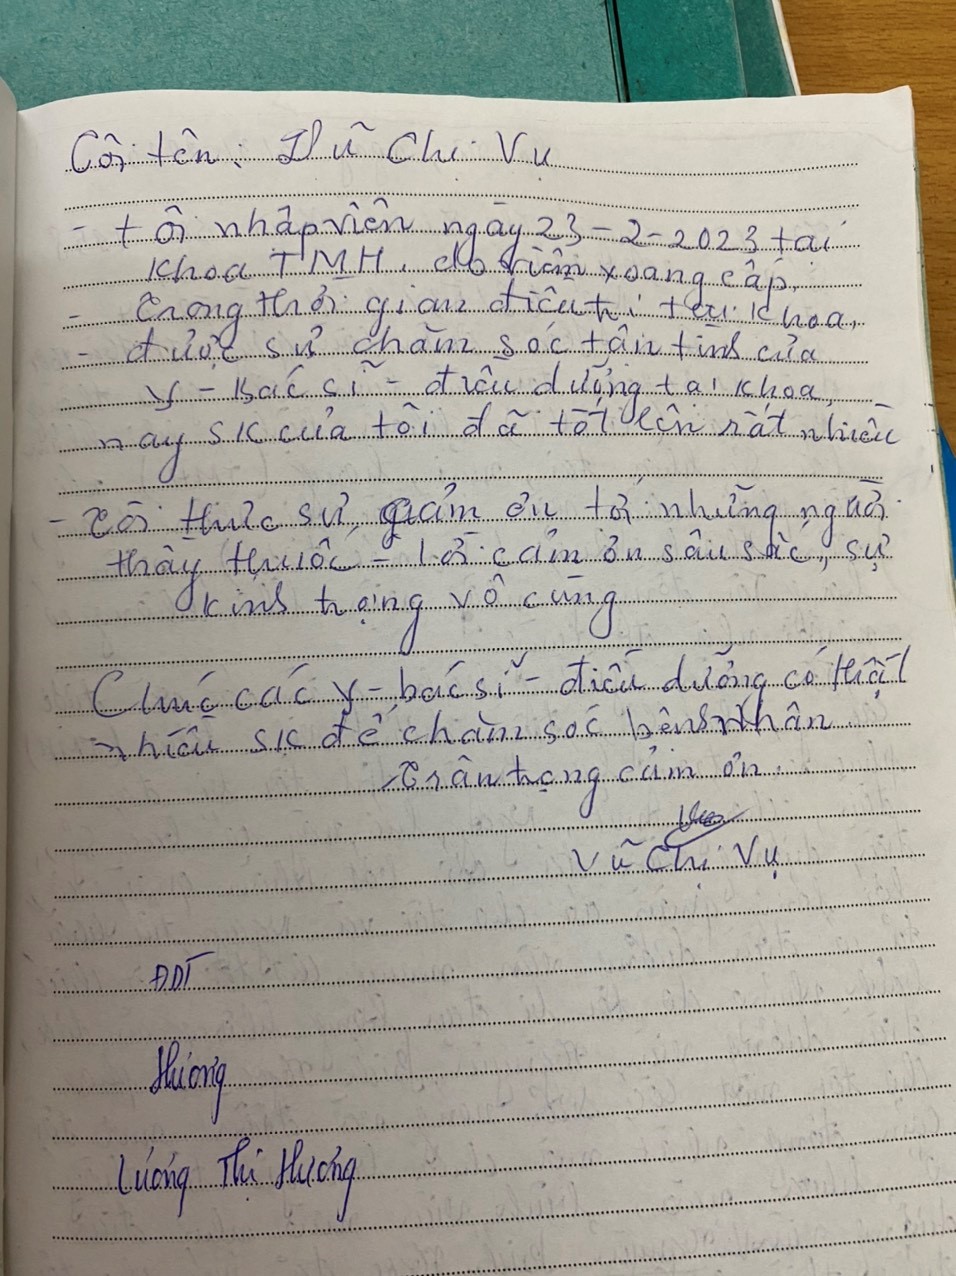 Tôi tên: Vũ Chi Vụ
- tôi nhập viện ngày 23-2-2023 tại
khoa TMH, do viêm xoang cấp.
- Trong thời gian điều trị tại khoa,
- được sự chăm sóc tận tình của
y - Bác sĩ - điều dưỡng tại khoa,
nay SK của tôi đã tốt lên rất nhiều
- Tôi thực sự cảm ơn tới những người
thầy thuốc - lời cảm ơn sâu sắc, sự
kính trọng vô cùng
Chúc các y - bác sĩ - điều dưỡng có thật
nhiều SK để chăm sóc bệnh nhân
Trân trọng cảm ơn.
Vũ Chi Vụ
ĐDT
Hương
Lương Thị Hương